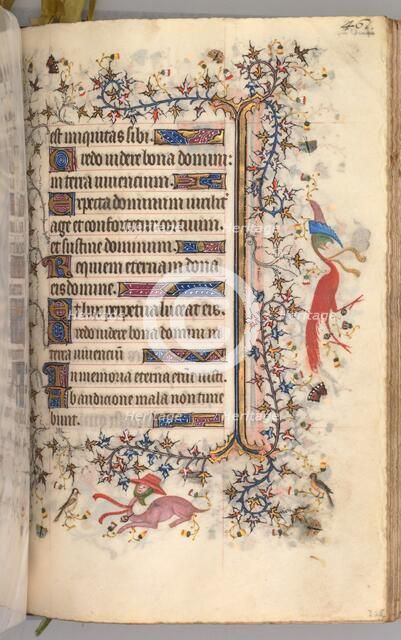 est iniquitas sibi.
Credo videre bona domini:
in terra viuencium.
Expecta dominum virilit
age et confortetur cor tuum.
et sustine dominum.
Requiem eternam dona
eis domine.
Et lux perpetua luceat eis.
Credo videre bona domini in
terra viuenciu
In memoria eterna erit iust
Ab audicione mala non time
bunt.
Heritage
Heritage
Heritage
Heritage